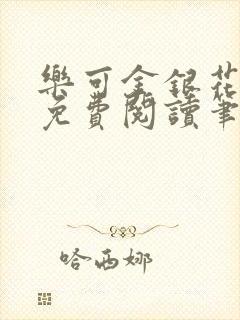 樂可金銀花
免費閱讀筆
哈西娜